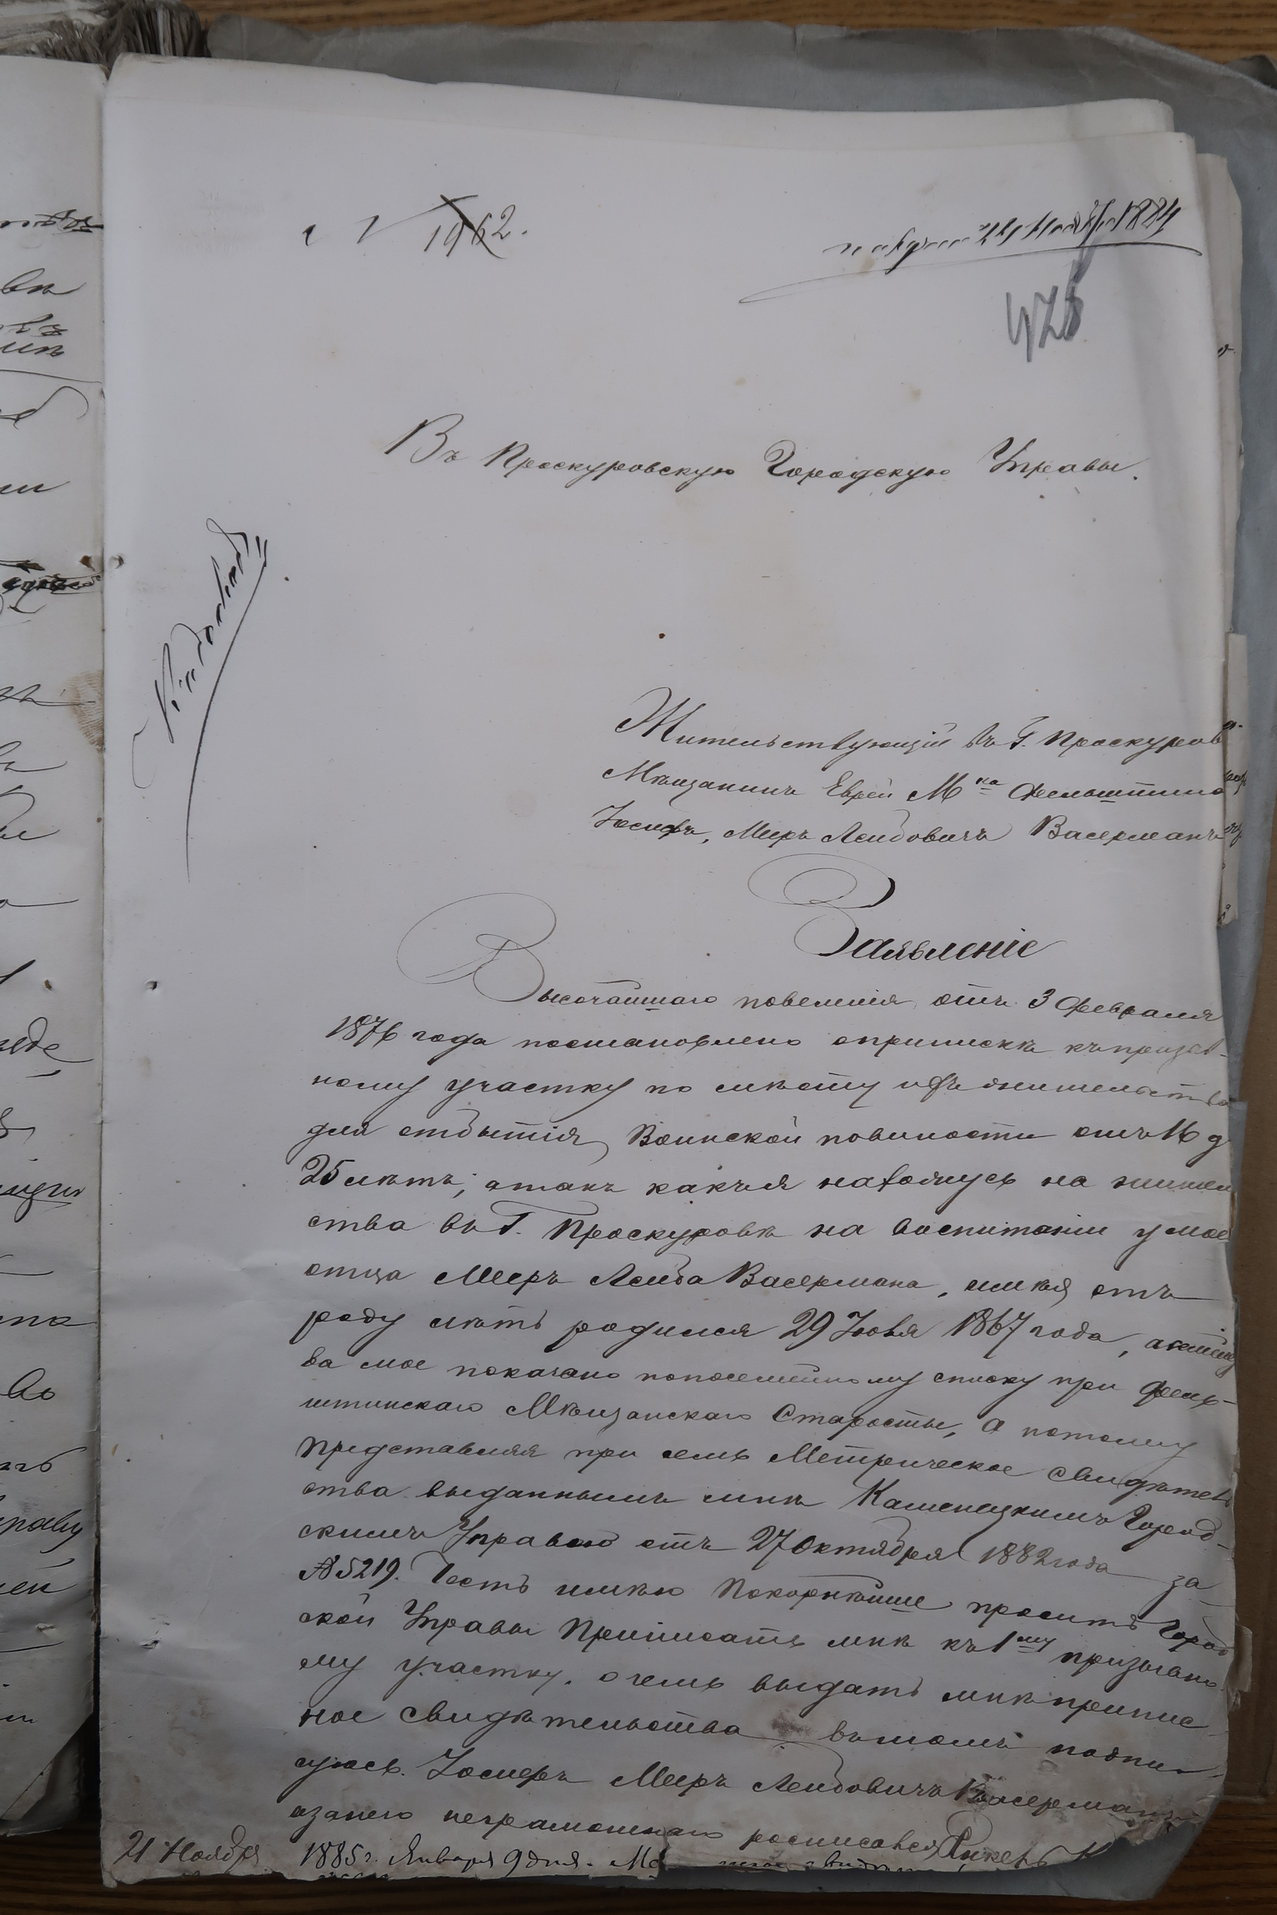 N 1962.
22 Ноября 1884
428
Въ Проскуровскую Городскую Управы.
Жительствующій въ г. Проскуров
Мѣщанинъ Еврей Мка Фельштина
Іосифъ, Меръ Лейбовичъ Васерманъ
Заявленіе
Высочайшаго повеленія отъ 3 Февраля
1876 года постановлено оприпискѣ къ призыв-
ному участку по мѣсту ихъ жительства
для отбытія Воинской повиности отъ 16 д
25 лѣтъ, а такъ какъ я нахожусь на жител
ства въ Г. Проскуровѣ на воспитаніи у мое
отца Мееръ Лейба Васермана, имѣя отъ
роду лѣтъ родился 29 Іюня 1867 года,
ва мое показано по посемейному списку при Фель-
штинскаго Мѣщанскаго Старосты, А потому
представляя при семъ Метрическое свидѣтель
ства выданнымъ мнѣ Каменецкимъ Город-
скимъ Управою отъ 27 Октября 1882 года за
№ 5219. Честь имѣю Покорнѣйше просить Город
ской Управы Приписать мнѣ къ 1му призывно
му участку. о чемъ выдать мнѣ припис
ное свидѣтельства въ томъ подпи-
суюсь. Іосифъ Мееръ Лейбовичъ Васерманъ
азанего неграмотнаго росписовся
21 Ноября 1885 г. Января 9 дня.